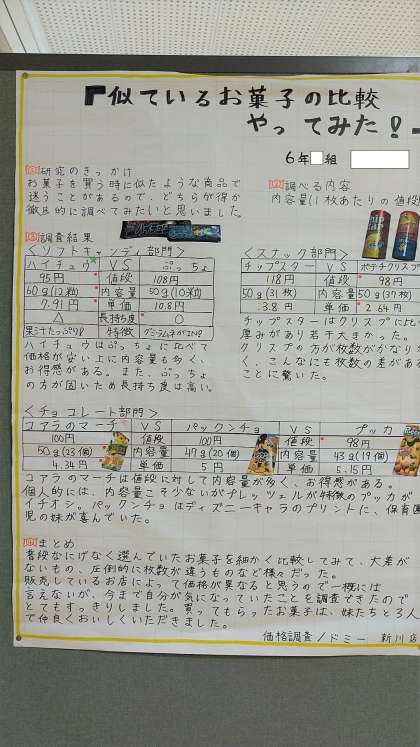 『似ているお菓子の比較
やってみた!
6年 組
①研究のきっかけ
お菓子を買う時に似たような商品で
迷うことがあるので、どちらが得か
徹底的に調べてみたいと思いました。
②調べる内容
内容量(1枚あたりの値段
③調査結果
<ソフトキャンディ部門>
ハイチュウ VS ぷっちょ
95円 値段 108円
60g(12粒) 内容量 50g(10粒)
7.91円 単価 10.8円
△ 長持ち度 ○
果汁たっぷり 特徴 グミランガIN
ハイチュウはぷっちょに比べて
価格が安い上に内容量も多く、
お得感がある。また、ぷっちょ
の方が固いため長持ち度は高い。
<スナック部門>
チップスター VS ポテチクリスプ
118円 値段 98円
50g(31枚) 内容量 50g(37枚)
3.8円 単価 2.64円
チップスターはクリスプに比べ
厚みがあり若干大きかった。
クリスプの方が枚数がかなり
く、こんなにも枚数の差がある
ことに驚いた。
<チョコレート部門>
コアラのマーチ VS パックンチョ VS プッカ
100円 値段 100円 値段 98円
50g(23個) 内容量 47g(20個) 内容量 43g(19個)
4.34円 単価 5円 単価 5.15円
コアラのマーチは値段に対して内容量が多く、お得感がある。
個人的には、内容量こそ少ないがプレッツェルが特徴のプッカが
イチオシ。パックンチョはディズニーキャラのプリントに、保育園
児の妹が喜んでいた。
④まとめ
普段なにげなく選んでいたお菓子を細かく比較してみて、大差が
ないもの、圧倒的に枚数が違うものなど様々だった。
販売しているお店によって価格が異なると思うので一概には
言えないが、今まで自分が気になっていたことを調査できたので
とてもすっきりしました。買ってもらったお菓子は、妹たちと3人
で仲良くおいしくいただきました。
価格調査/ドミー 新川店